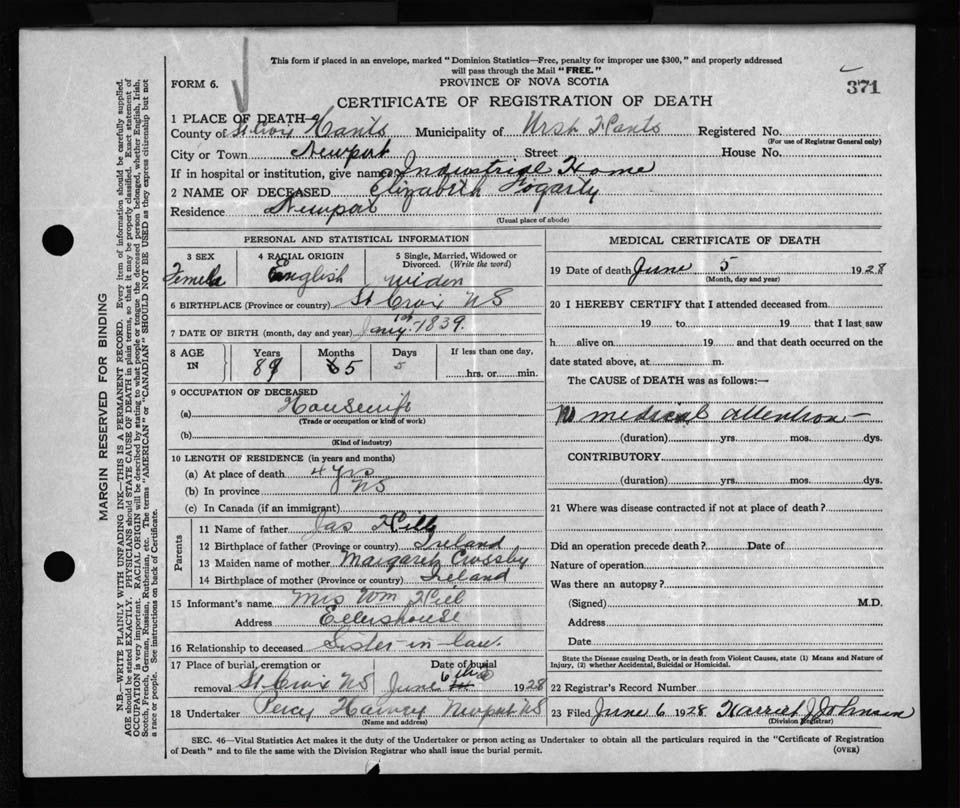 This form if placed in an envelope, marked "Dominion Statistics—Free, penalty for improper use $300," and properly addressed
will pass through the Mail "FREE."
FORM 6.
PROVINCE OF NOVA SCOTIA
371
CERTIFICATE OF REGISTRATION OF DEATH
1 PLACE OF DEATH
County of St Croix Hants Municipality of West Hants Registered No.
(For use of Registrar General only)
City or Town Newport Street House No.
If in hospital or institution, give name Industrial Home
2 NAME OF DECEASED Elizabeth Fogarty
Residence Newport
(Usual place of abode)
PERSONAL AND STATISTICAL INFORMATION
3 SEX 4 RACIAL ORIGIN 5 Single, Married, Widowed or
Divorced. (Write the word)
Female English Widow
6 BIRTHPLACE (Province or country) St Croix NS
7 DATE OF BIRTH (month, day and year) Jany 1st 1839.
8 AGE IN Years Months Days If less than one day,
89 5 5 hrs. or min.
9 OCCUPATION OF DECEASED
(a) Housewife
(Trade or occupation or kind of work)
(b)
(Kind of industry)
10 LENGTH OF RESIDENCE (in years and months)
(a) At place of death 4 yrs
(b) In province NS
(c) In Canada (if an immigrant)
Parents
11 Name of father Jas
12 Birthplace of father (Province or country) Ireland
13 Maiden name of mother Margaret Crossby
14 Birthplace of mother (Province or country) Ireland
15 Informant's name Mrs Wm
Address Ellershouse
16 Relationship to deceased Sister-in-law.
17 Place of burial, cremation or Date of burial
removal St Croix NS June 6th 1928
18 Undertaker Percy Harvey Newport NS
(Name and address)
MEDICAL CERTIFICATE OF DEATH
19 Date of death June 5 1928
(Month, day and year)
20 I HEREBY CERTIFY that I attended deceased from
19 to 19 that I last saw
h alive on 19 and that death occurred on the
date stated above, at m.
The CAUSE of DEATH was as follows:—
No medical attention —
(duration) yrs. mos. dys.
CONTRIBUTORY
(duration) yrs. mos. dys.
21 Where was disease contracted if not at place of death?
Did an operation precede death? Date of
Nature of operation
Was there an autopsy?
(Signed) M.D.
Address
Date
State the Disease causing Death, or in death from Violent Causes, state (1) Means and Nature of
Injury, (2) whether Accidental, Suicidal or Homicidal.
22 Registrar's Record Number
23 Filed June 6 1928 Harriet J Johnson
(Division Registrar)
SEC. 46—Vital Statistics Act makes it the duty of the Undertaker or person acting as Undertaker to obtain all the particulars required in the "Certificate of Registration
of Death" and to file the same with the Division Registrar who shall issue the burial permit.
(OVER)
MARGIN RESERVED FOR BINDING
N.B.—WRITE PLAINLY WITH UNFADING INK—THIS IS A PERMANENT RECORD. Every item of information should be carefully supplied.
AGE should be stated EXACTLY. PHYSICIANS should STATE CAUSE OF DEATH in plain terms, so that it may be properly classified. Exact statement of
OCCUPATION is very important. RACIAL ORIGIN will be described by stating to what people or tongue the deceased person belonged, whether English, Irish,
Scotch, French, German, Russian, Ruthenian, etc. The terms "AMERICAN" or "CANADIAN" SHOULD NOT BE USED as they express citizenship but not
a race or people. See instructions on back of Certificate.